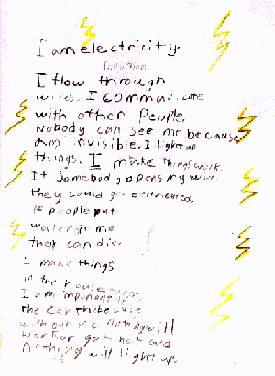 I am electricity.
I flow through
wires. I communicate
with other people.
Nobody can see me because
I am invisible. I light up
things. I make things work.
If somebody opens my wire
they could get electricuted.
If people put
water on me
they can die.
I make things
in the house work.
I am important to
the
without me nothing will
work or
Nothing will light up.